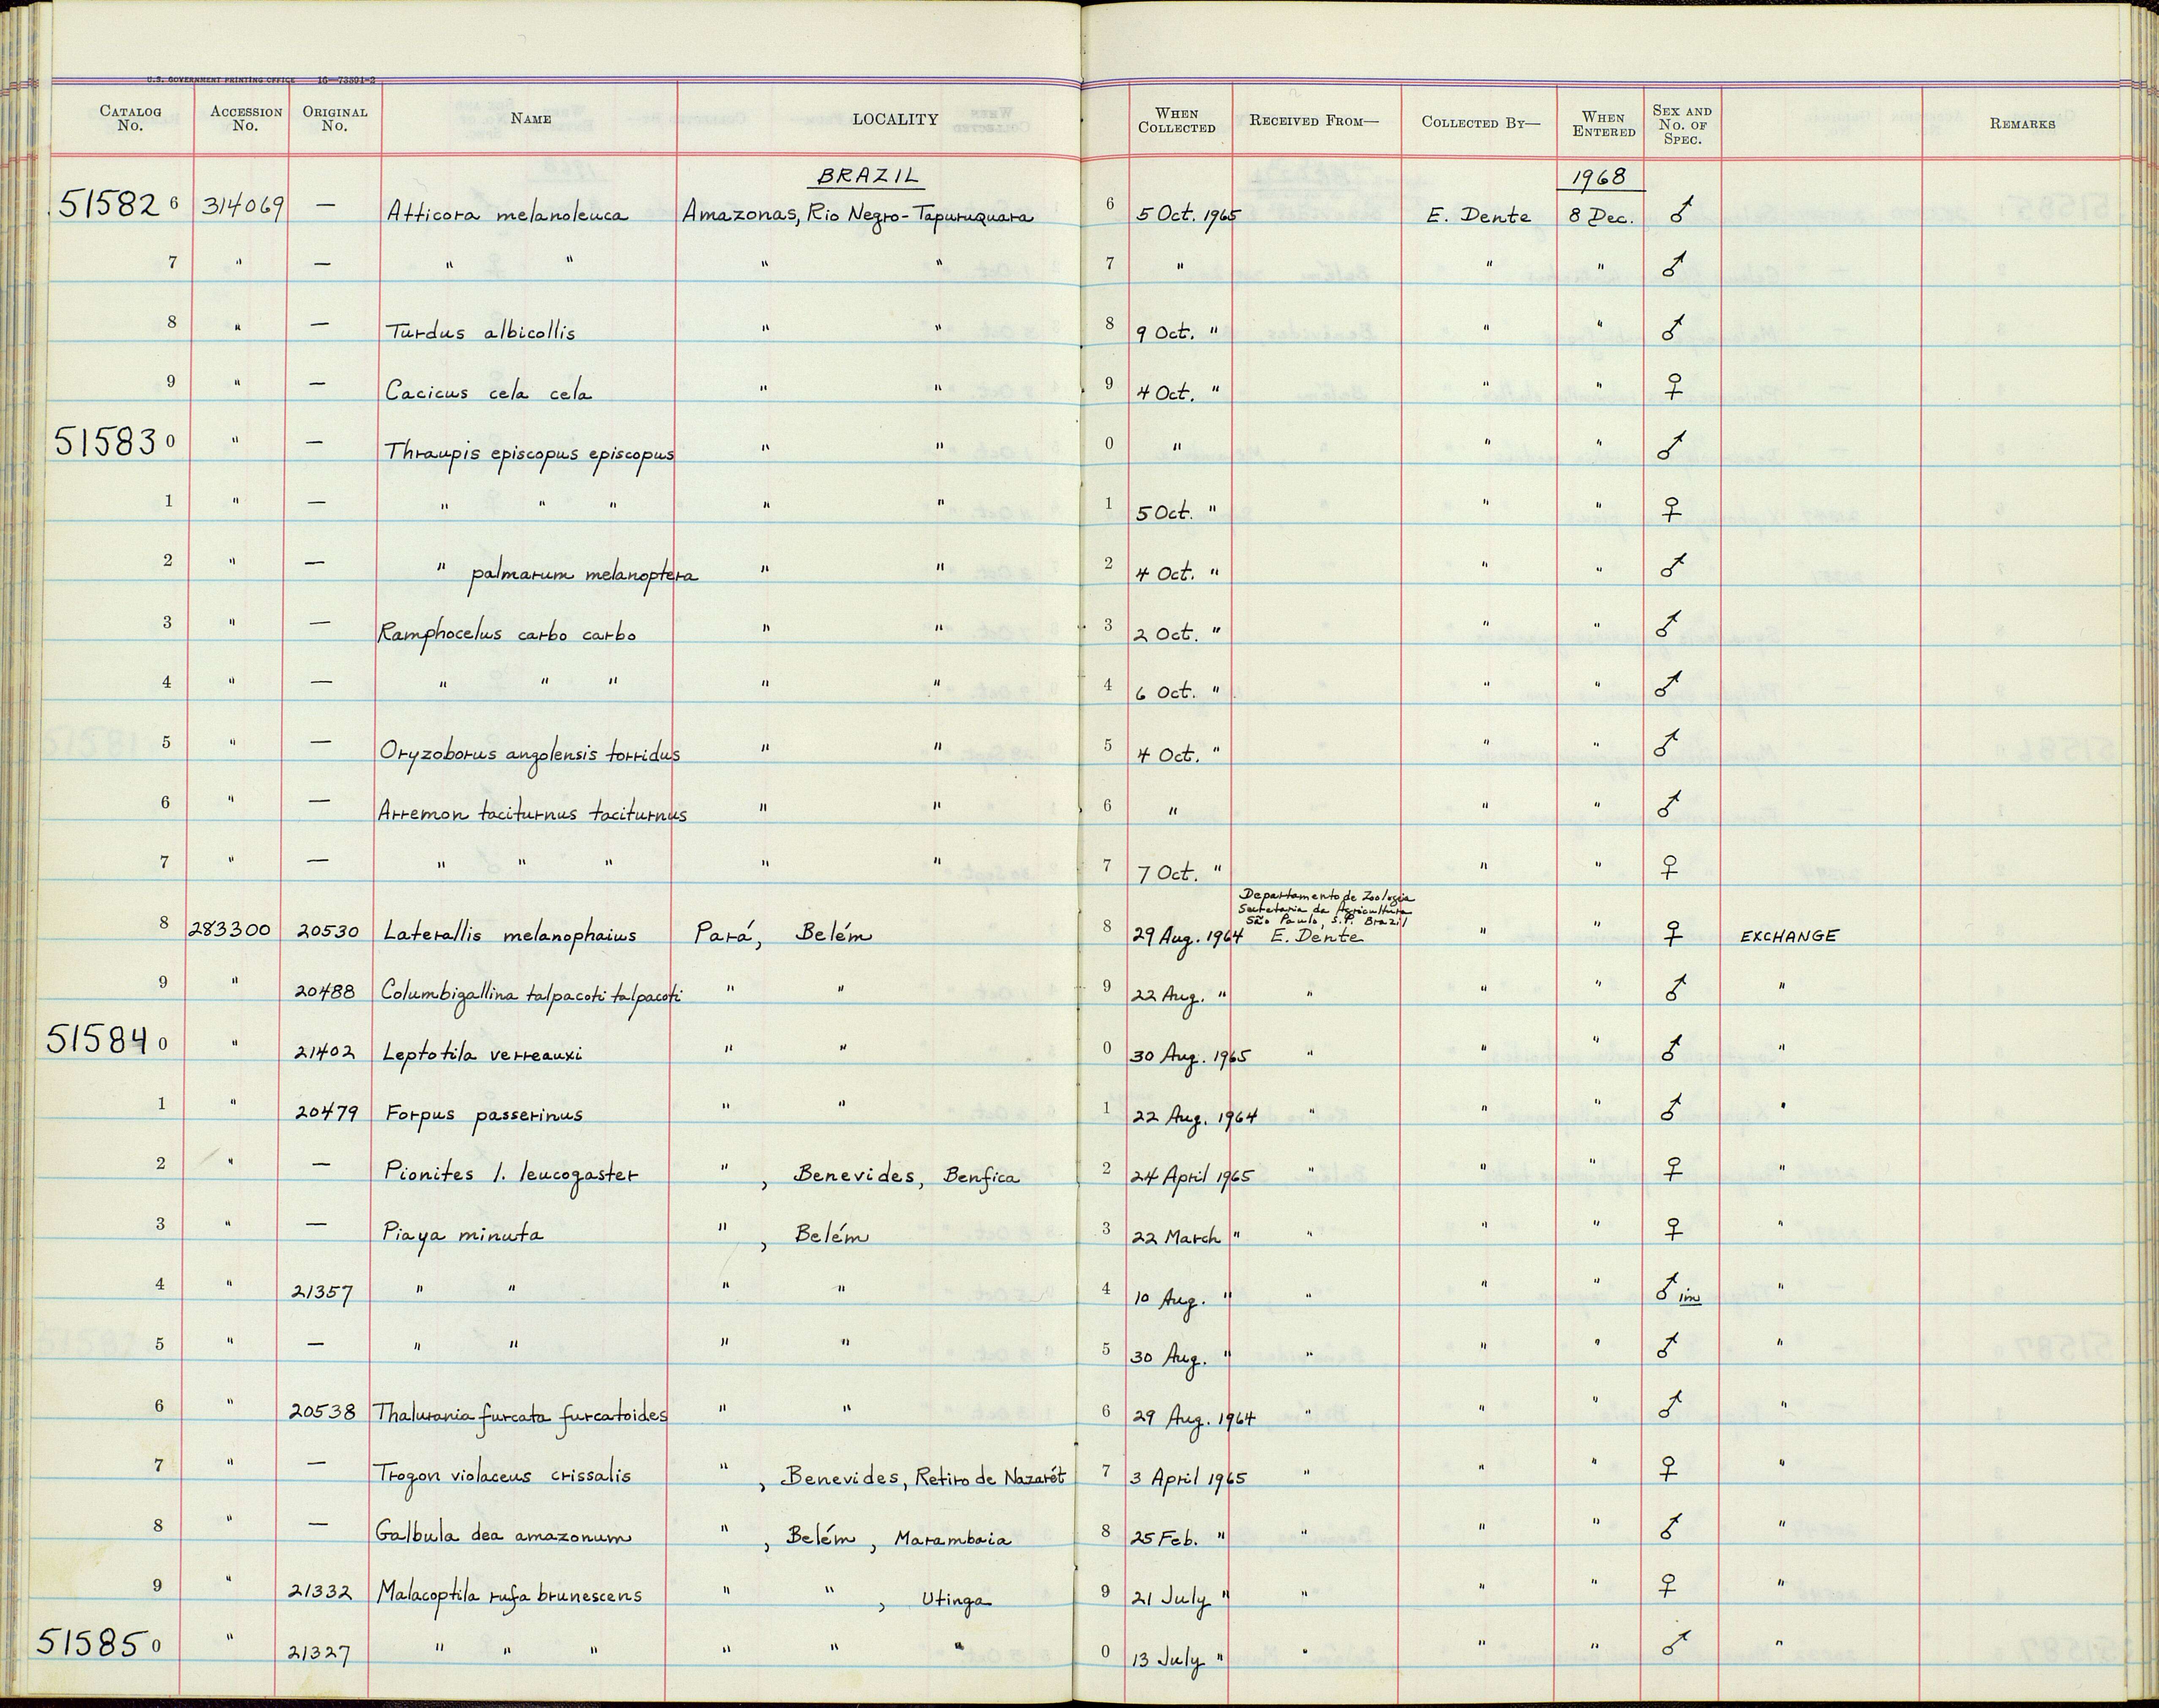 U.S. GOVERNMENT PRINTING OFFICE 16—73591-2
CATALOG No. ACCESSION No. ORIGINAL No. NAME LOCALITY WHEN COLLECTED RECEIVED FROM— COLLECTED BY— WHEN ENTERED SEX AND No. OF SPEC. REMARKS
BRAZIL 1968
51582 6 314069 — Atticora melanoleuca Amazonas, Rio Negro-Tapuruquara 6 5 Oct. 1965 E. Dente 8 Dec. ♂
7 " — " " " " 7 " " " ♂
8 " — Turdus albicollis " " 8 9 Oct. " " " ♂
9 " — Cacicus cela cela " " 9 4 Oct. " " " ♀
51583 0 " — Thraupis episcopus episcopus " " 0 " " " ♂
1 " — " " " " " 1 5 Oct. " " " ♀
2 " — " palmarum melanoptera " " 2 4 Oct. " " " ♂
3 " — Ramphocelus carbo carbo " " 3 2 Oct. " " " ♂
4 " — " " " " " 4 6 Oct. " " " ♂
5 " — Oryzoborus angolensis torridus " " 5 4 Oct. " " " ♂
6 " — Arremon taciturnus taciturnus " " 6 " " " ♂
7 " — " " " " " 7 7 Oct. " " " ♀
Departamento de Zoologia
Secretaria da Agricultura
São Paulo, S.P. Brazil
8 283300 20530 Laterallis melanophaius Pará, Belém 8 29 Aug. 1964 E. Dente " " ♀ EXCHANGE
9 " 20488 Columbigallina talpacoti talpacoti " " 9 22 Aug. " " " " ♂ "
51584 0 " 21402 Leptotila verreauxi " " 0 30 Aug. 1965 " " " ♂ "
1 " 20479 Forpus passerinus " " 1 22 Aug. 1964 " " " ♂ "
2 " — Pionites l. leucogaster " , Benevides, Benfica 2 24 April 1965 " " " ♀ "
3 " — Piaya minuta " , Belém 3 22 March " " " " ♀ "
4 " 21357 " " " " 4 10 Aug. " " " " ♂ im "
5 " — " " " " 5 30 Aug. " " " " ♂ "
6 " 20538 Thalurania furcata furcatoides " " 6 29 Aug. 1964 " " " ♂ "
7 " — Trogon violaceus crissalis " , Benevides, Retiro de Nazarét 7 3 April 1965 " " " ♀ "
8 " — Galbula dea amazonum " , Belém, Marambaia 8 25 Feb. " " " " ♂ "
9 " 21332 Malacoptila rufa brunescens " " , Utinga 9 21 July " " " " ♀ "
51585 0 " 21327 " " " " " " 0 13 July " " " " ♂ "